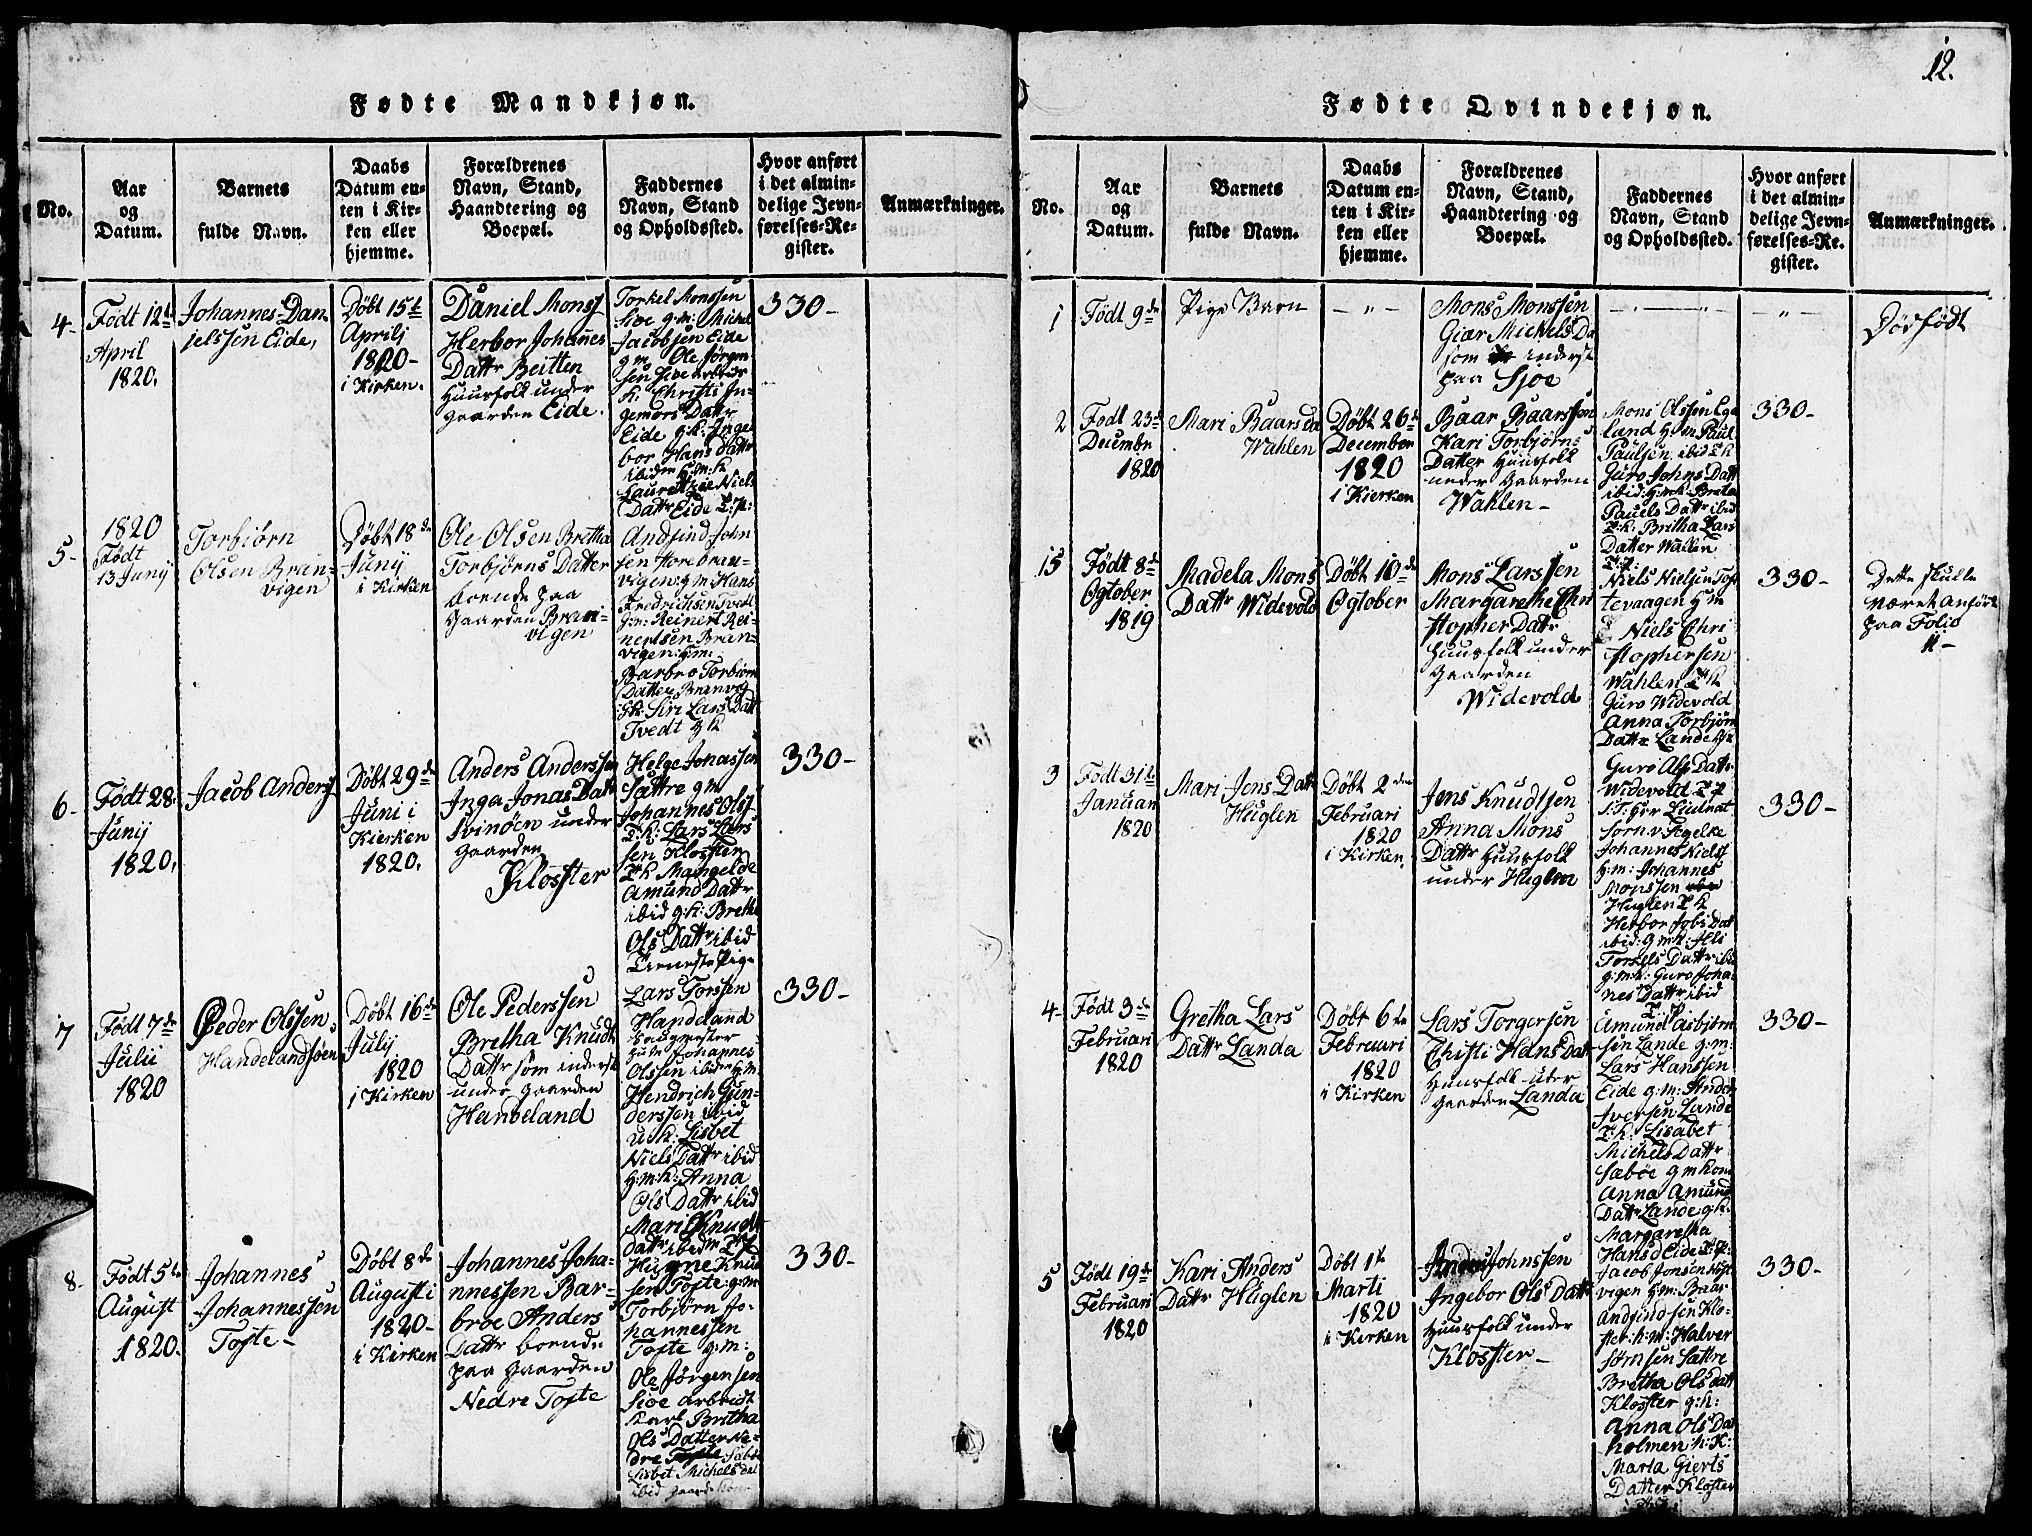 12.
Fødte Mandkjøn.
No.
Aar
og
Datum.
Barnets
fulde Navn.
Daabs
Datum en-
ten i Kir-
ken eller
hjemme.
Forældrenes
Navn, Stand,
Haandtering og
Boepæl.
Faddernes
Navn, Stand
og Opholdssted.
Hvor anført
i det almin-
delige Jevn-
førelses-Re-
gister.
Anmærkninger.
4-
Født 12te
April
1820.
Johannes Dan-
jelssen Eide,
Døbt 15te
Aprilj
1820-
i Kirken.
Daniel Monsś
Herbor Johannes
Dattr Beitten
Huusfolk under
Gaarden Eide.
Torkel Monssen
Sioe g:m: Michel
Jacobsen Eide
g m Ole Jørgen
sen Sioe
k. Christi In-
gemors Dattr
Eide g:k: Inge
bor Hans Dattr
ibid
Niels
Dattr Eide T:P:
330-
5-
1820
Født
13 Junij
Torbiørn
Olsen Bran-
vigen
Døbt 18de
Junij
i Kirken
Ole Olsen Bretha
Torbjørns Datter
boende paa
Gaarden Bran-
vigen
Andfind John
sen Horebran-
vigen g:m: Hans
Fredrichsen Tvedt
g:m: Reinert Rei-
nertsen Bran-
vigen: g:m:
Barbro Torbiørn
Datter Branvig
g:k: Siri Lars Datt
Tvedt g k
6-
Født 28
Junij
1820.
Jacob Andersś
Døbt 29de
Juni i
Kierken
1820.
Anders Anderssen
Inga Jonas Datt
Svinøen under
Gaarden
Kloster
Helge Jonassen
Sattre g m
Johannes Olsś
T:k: Lars Lars
sen Kloster
T:k Mangelde
Amund Dattr
ibid g:k: Bretha
Ols Dattr ibid
Tieneste Pige
330-
7
Født 7de
Julii
1820
Peder Olssen
Handelandsøen
Døbt 16de
Julij
1820
i Kirken
Ole Pederssen
Bretha Knudt
Dattr som inderst
under Gaarden
Handeland
Lars Torssen
Handeland
Johannes
Olssen ibid g:m:
Hendrich Gun-
derssen ibid
u:k: Lisbet
Niels Dattr ibid
g:m:k: Anna
Ols Dattr ibid
Mari Knudt
datr ibidm T:P
330-
8-
Født 5te
August
1820.
Johannes
Johannessen
Tofte-
Døbt 8de
Augusti
1820-
i Kirken
Johannes Joha-
nnessen Bar-
broe Anders
Dattr boende
paa Gaarden
Nedre Tofte
Knud
sen Tofte: g:m
Torbjørn Jo-
hannessen
Tofte g:m:
Ole Jørgensen
Sioe Arbeids
Karl Britha
Ols Datter Ne-
dre Tofte
Lisbet Michelsdat
ibid
330-
Fødte Qvindekjøn.
No.
Aar
og
Datum.
Barnets
fulde Navn.
Daabs
Datum en-
ten i Kir-
ken eller
hjemme.
Forældrenes
Navn, Stand,
Haandtering og
Boepæl.
Faddernes
Navn, Stand
og Opholdssted.
Hvor anført
i det almin-
delige Jevn-
førelses-Re-
gister.
Anmærkninger.
1
Født 9de
Pige Barn
- „ -
Mons Monssen
Giær Michels Da
som inderst
paa Sjoe
- „ -
„
Dødfødt
2
Født 23de
Decembr
1820
Mari Baarsda
Wahlen
Døbt 26de
December
1820
i Kierken
Baar Baarssøn
Kari Torbjørns
Datter Huusfolk
under Gaarden
Wahlen-
Mons Olssen Ege
land g:m Paul
Paulsen ibid T:k
Guro Johns Datt
ibid: g:m:k: Breta
Pauels Dattr ibid
T:k: Britha Lars
Datter Wallen
T:P:
330-
15
Født 8de
Ogtober
1819
Madela Mons
Dattr Widevold
Døbt 10de
Ogtober
Mons Larssen
Margarethe Chri
stopher Dattr
Huusfolk under
Gaarden
Widevold
Niels Nielsen Tof
tevaagen g:m
Niels Chri
stophersen
Wahlen T:k
Guro Widevold
Anna Torbjørn
Dattr Lande
Guro Dattr
Widevold T:P
330-
Dette skulle
været anført
paa Folio
11-
3
Født 31te
Januari
1820
Mari Jens Datt
Huglen
Døbt 2den
Februari
1820
i Kirken
Jens Knudtsen
Anna Mons
Dattr Huusfolk
under Huglen
Johannes Nielsś
g:m: Johannes
Monssen
Huglen T:k
Herbor Jobs Datt
ibid: g:m:k:
Torkels Dattr ibid
g:m:k: Guro Joha-
nes Dattr ibid
330-
4-
Født 3de
Februari
1820
Gretha Lars
Dattr Landa
Døbt 6te
Februari
1820
i Kirken
Lars Torgersen
Christi Hans Datt
Huusfolk
Gaarden Landa
Amund Asbjørn
sen Lande g:m:
Lars Hanssen
Eide g:m: Anders
Iversen Lande
T:k: Lisabet
Michels Dattr
Sæbøe g:m kone
Anna Amund
Dattr Lande g:k.
Margaretha
Hansd Eide T:P:
330-
5
Født 19de
Februari
1820
Kari Anders
Dattr Huglen
Døbt 1te
Marti
1820
i Kirken
Anders Johnssen
Ingebor Ols Datt
Huusfolk under
Kloster-
Jacob Jonsen
vigen g:m: Baar
Andfindsen Klo-
ster: h:m: Halver
Sørnsen Sattre
Bretha Olsdatt
Kloster g:k:
Anna Ols Dat
holmen: h:K:
Marta Gierts
Datter Kloster
330-